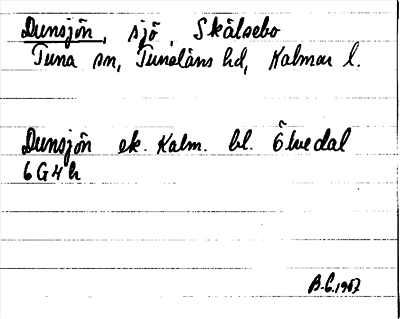 Dunsjön, sjö, Skälsebo
Tuna sn, Tunaläns hd, Kalmar l.
Dunsjön ek. Kalm. bl. Ölvedal
6G4h
B.G. 1967